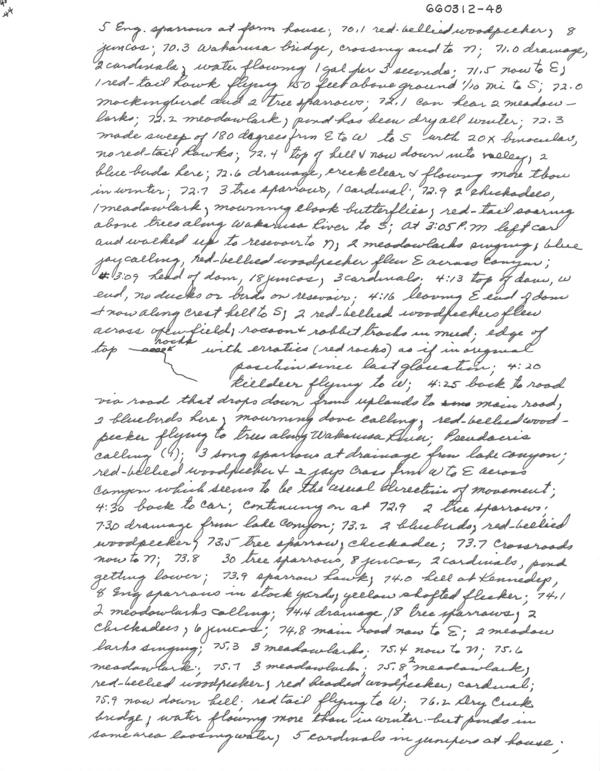 660312-48
5 Eng. sparrows at farm house; 70.1 red-bellied woodpecker, 8
juncos; 70.3 Wakarusa bridge, crossing and to N; 71.0 drainage,
2 cardinals, water flowing 1 gal per 3 seconds; 71.5 now to E;
1 red-tail hawk flying 150 feet above ground 1/10 mi to S; 72.0
mockingbird and 2 tree sparrows; 72.1 can hear 2 meadow-
larks; 72.2 meadowlark, pond has been dry all winter; 72.3
made sweep of 180 degrees from E to W to S with 20X binocular,
no red-tail hawks; 72.4 top of hill & now down into valley, 2
bluebirds here; 72.6 drainage, creek clear & flowing more than
in winter; 72.7 3 tree sparrows, 1 cardinal; 72.9 2 chickadees,
1 meadowlark, mourning cloak butterflies, red-tail soaring
above trees along Wakarusa River to S; at 3:05 P.M left car
and walked up to resevoir to N; 2 meadowlarks singing, blue
jay calling, red-bellied woodpecker flew E across canyon;
3:09 head of dam, 18 juncos, 3 cardinals. 4:13 top of dam, W
end, no ducks or birds on resevoir; 4:16 leaving E end of dam
& now along crest hill to S; 2 red-bellied woodpeckers flew
across open field; racoon & rabbit tracks in mud; edge of
top rocks with erratics (red rocks) as if in original
position since last glaciation; 4:20
killdeer flying to W; 4:25 back to road
via road that drops down from uplands to main road,
2 bluebirds here, mourning dove calling, red-bellied wood-
pecker flying to trees along Wakarusa River; Pseudacris
calling (4); 3 song sparrows at drainage from lake canyon;
red-bellied woodpecker & 2 jays cross from W to E across
canyon which seems to be the usual direction of movement;
4:30 back to car; continuing on at 72.9 2 tree sparrows;
73.0 drainage from lake canyon; 73.2 2 bluebirds, red-bellied
woodpecker; 73.5 tree sparrow, chickadee; 73.7 Crossroads
now to N; 73.8 30 tree sparrows, 8 juncos, 2 cardinals, pond
getting lower; 73.9 sparrow hawk; 74.0 hill at Kennedys,
8 Eng sparrows in stock yards, yellow shafted flicker; 74.1
2 meadowlarks calling; 74.4 drainage, 18 tree sparrows, 2
chickadees, 6 juncos; 74.8 main road now to E; 2 meadow
larks singing; 75.3 3 meadowlarks; 75.4 now to N; 75.6
meadowlark; 75.7 3 meadowlarks; 75.8 2 meadowlark,
red-bellied woodpecker, red headed woodpecker, cardinal;
75.9 now down hill; red tail flying to W; 76.2 Dry Creek
bridge, water flowing more than in winter but ponds in
same area loosing water, 5 cardinals in junipers at house;